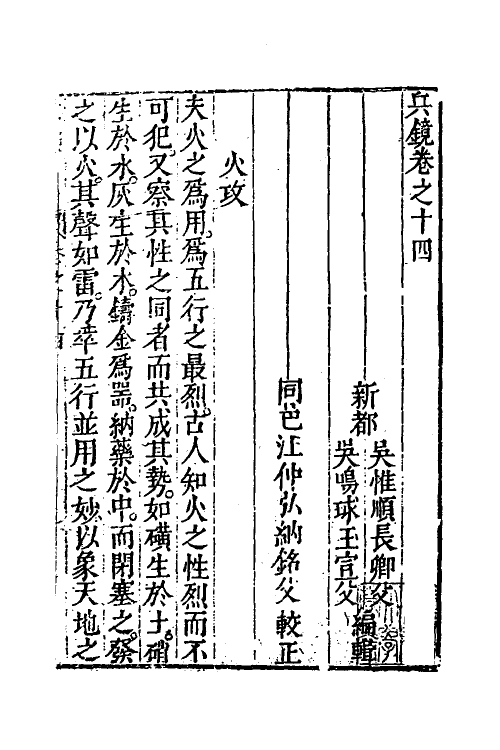 兵鏡卷之十四
新都
吳惟順長卿父
吳鳴球玉宣父
編輯
同邑汪仲弘納銘父較正
火攻
夫火之爲用爲五行之最烈古人知火之性烈而不
可犯又察其性之同者而共成其勢如磺生於土硝
生於水灰生於木鑄金爲器納藥於中而閉塞之發
之以火其聲如雷乃幸五行並用之妙以象天地之